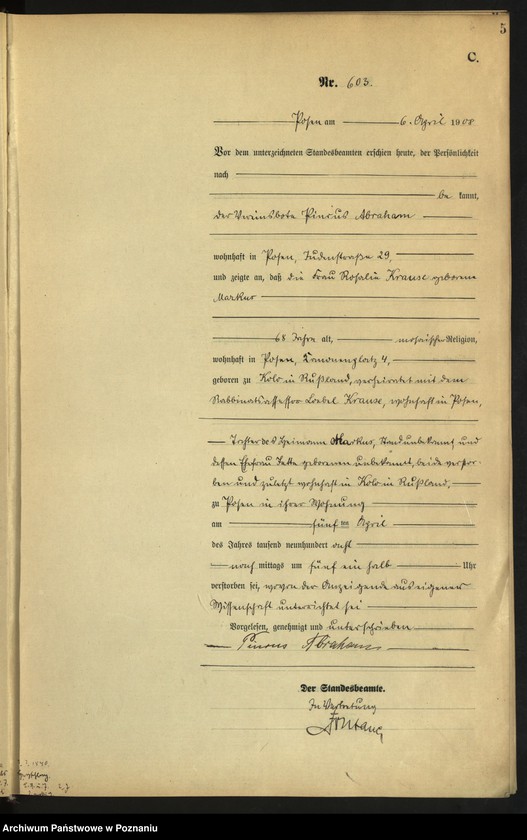 5
C.
Nr. 603.
Posen am 6. April 1908
Vor dem unterzeichneten Standesbeamten erschien heute, der Persönlichkeit
nach
be kannt,
der Vereinsbote Pincus Abraham
wohnhaft in Posen, Judenstraße 29,
und zeigte an, daß die Frau Rosalie Krause geborene
Markus
68 Jahre alt, mosaischer Religion,
wohnhaft in Posen, Kanonenplatz 4,
geboren zu Kolo in Rußland, verheiratet mit dem
Rabbinatsassessor Loebel Krause, wohnhaft in Posen,
Tochter des Heimann Markus, Stand unbekannt, und
dessen Ehefrau Jette geborenen unbekannt, beide verstor-
ben und zuletzt wohnhaft in Kolo in Rußland,
zu Posen in ihrer Wohnung
am fünften April
des Jahres tausend neunhundert acht
nach mittags um fünf ein halb Uhr
verstorben sei, wovon der Anzeigende aus eigener
Wissenschaft unterrichtet sei
Vorgelesen, genehmigt und unterschrieben
Pincus Abraham
Der Standesbeamte.
In Vertretung
Archiwum Państwowe w Poznaniu